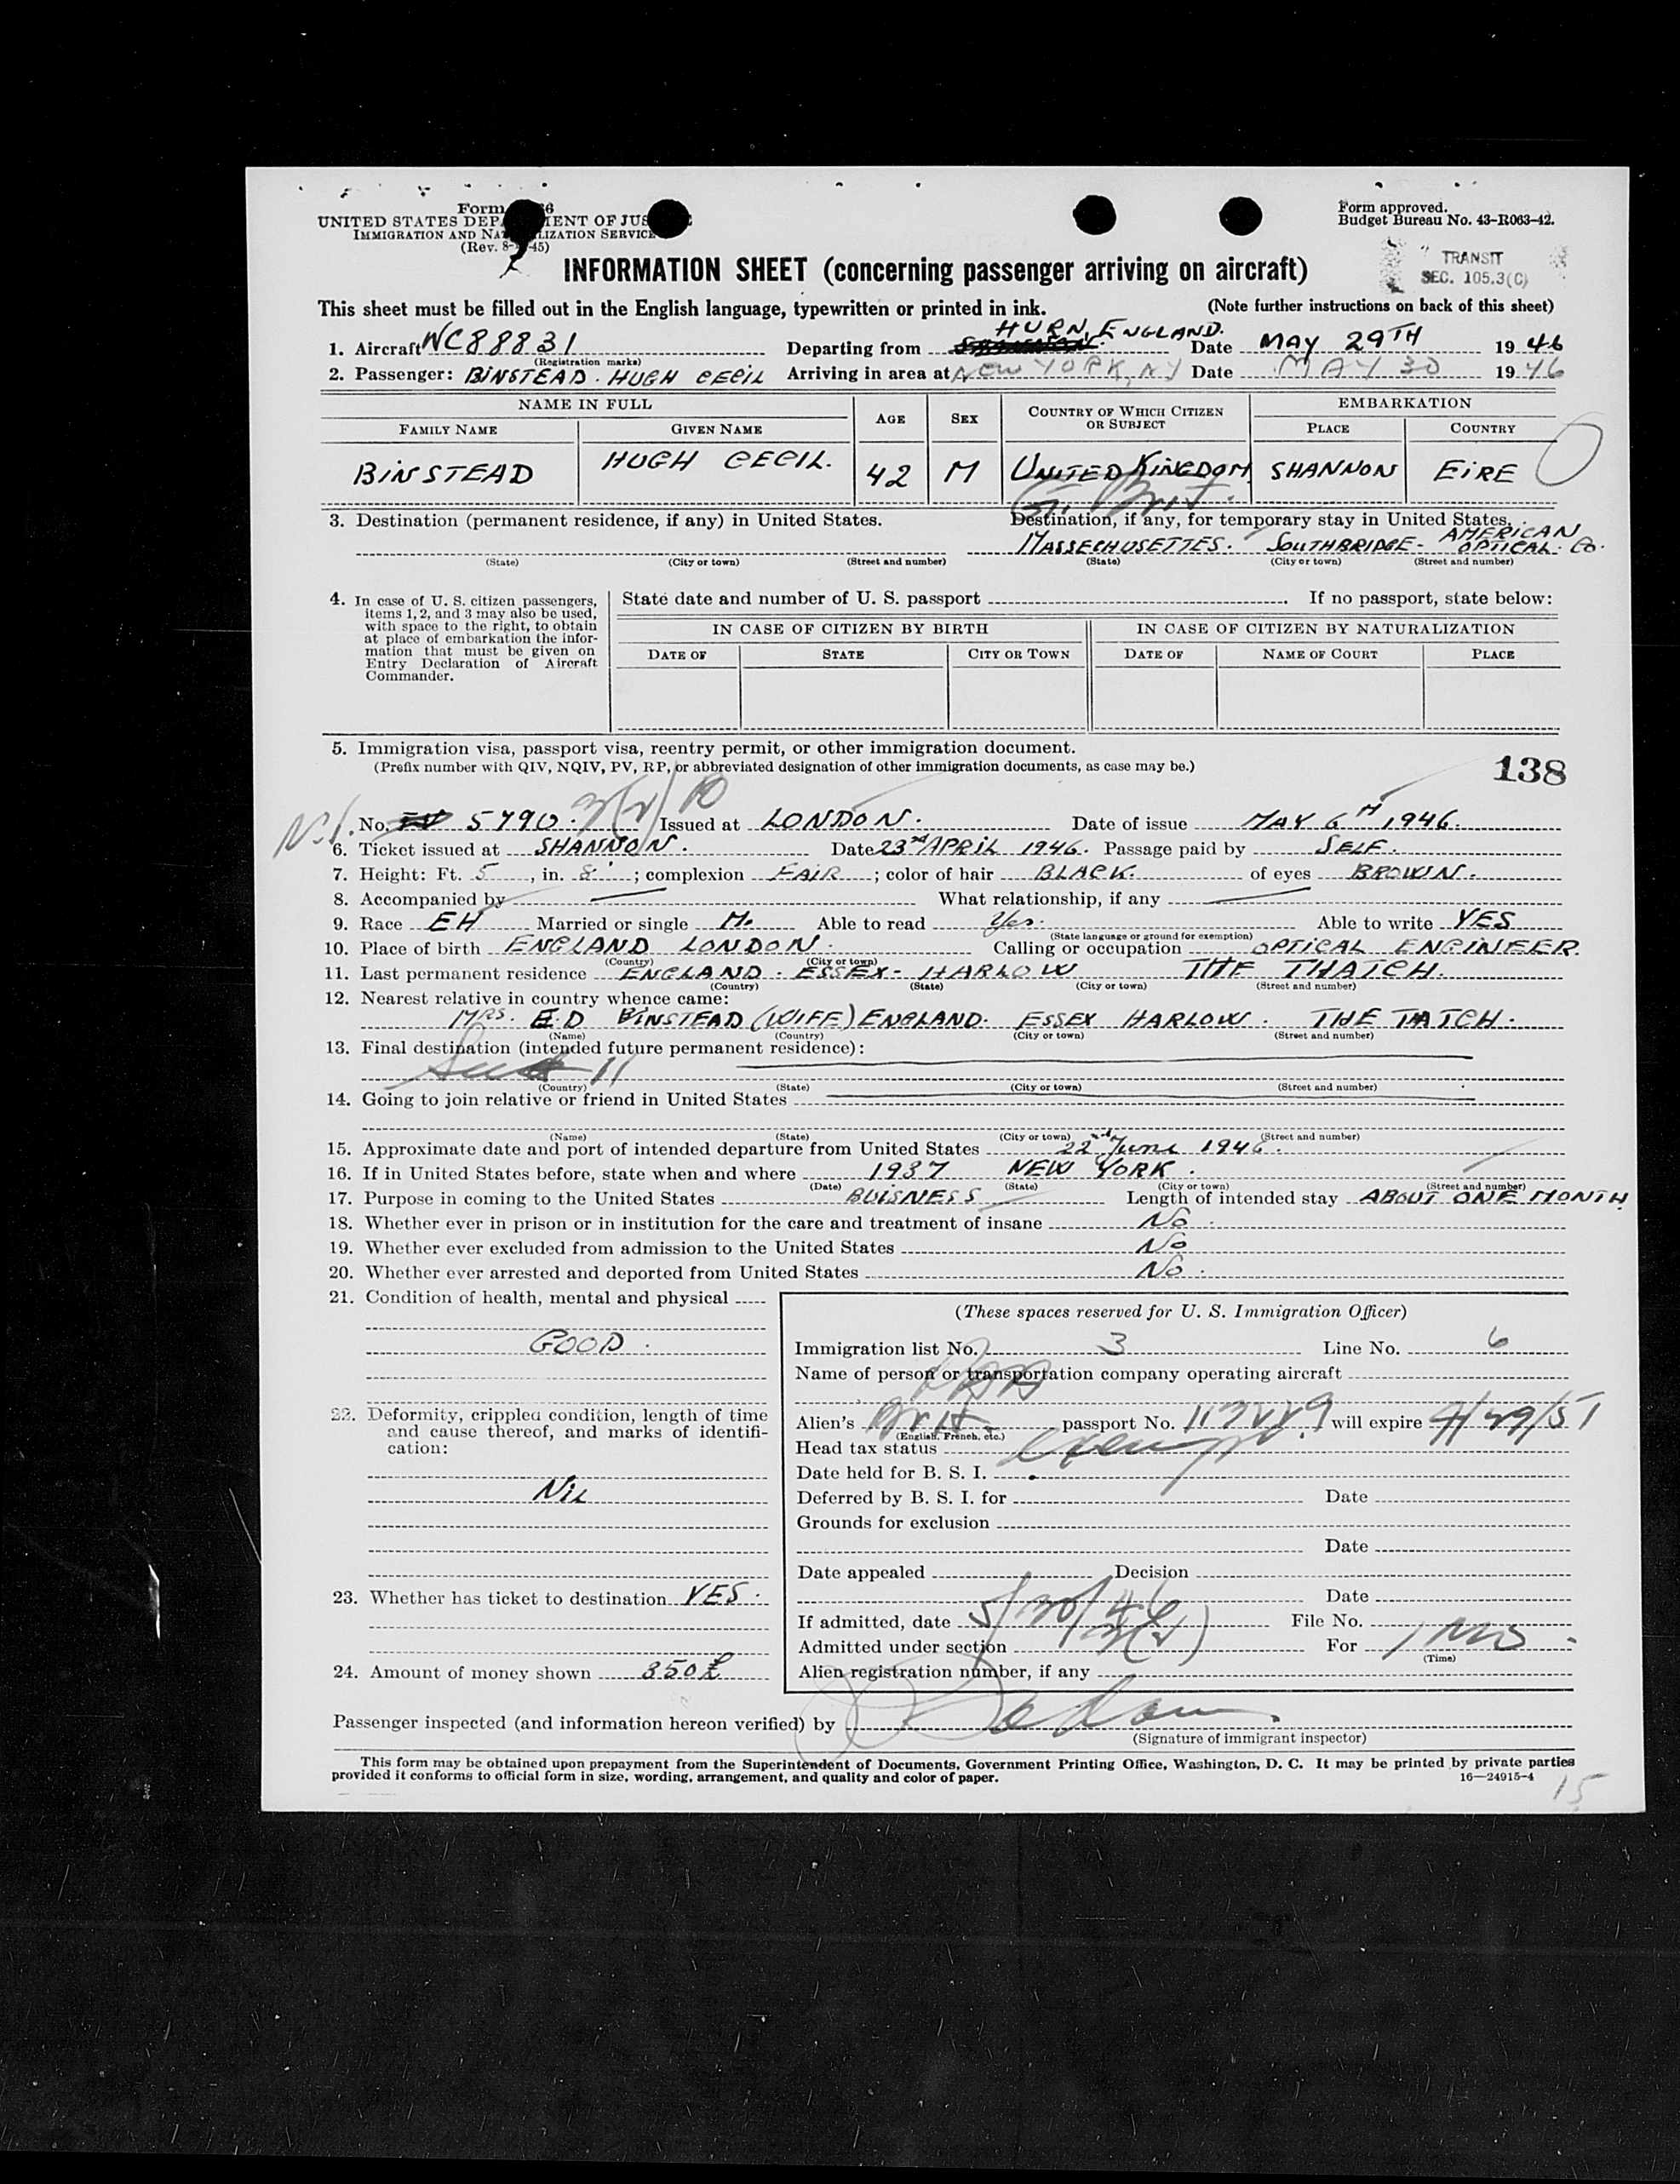 Form
UNITED STATES DEPARTMENT OF JUSTICE
IMMIGRATION AND NATURALIZATION SERVICE
(Rev. 8- -45)
Form approved.
Budget Bureau No. 43-R063-42.
TRANSIT
SEC. 105.3(C)
INFORMATION SHEET (concerning passenger arriving on aircraft)
This sheet must be filled out in the English language, typewritten or printed in ink. (Note further instructions on back of this sheet)
HURN, ENGLAND.
1. Aircraft NC88831 Departing from Date MAY 29TH 1946
(Registration marks)
2. Passenger: BINSTEAD. HUGH CECIL Arriving in area at NEW YORK, NY Date MAY 30 1946
NAME IN FULL AGE SEX COUNTRY OF WHICH CITIZEN OR SUBJECT EMBARKATION
FAMILY NAME GIVEN NAME PLACE COUNTRY
BINSTEAD HUGH CECIL. 42 M UNITED KINGDOM SHANNON EIRE
Gt. Brit.
3. Destination (permanent residence, if any) in United States. Destination, if any, for temporary stay in United States.
MASSECHUSETTES. SOUTHBRIDGE- AMERICAN OPTICAL. Co.
(State) (City or town) (Street and number) (State) (City or town) (Street and number)
4. In case of U. S. citizen passengers, items 1, 2, and 3 may also be used, with space to the right, to obtain at place of embarkation the information that must be given on Entry Declaration of Aircraft Commander.
State date and number of U. S. passport . If no passport, state below:
IN CASE OF CITIZEN BY BIRTH IN CASE OF CITIZEN BY NATURALIZATION
DATE OF STATE CITY OR TOWN DATE OF NAME OF COURT PLACE
5. Immigration visa, passport visa, reentry permit, or other immigration document.
(Prefix number with QIV, NQIV, PV, RP, or abbreviated designation of other immigration documents, as case may be.)
138
No. 5790. 3(2) Issued at LONDON. Date of issue MAY 6TH 1946.
6. Ticket issued at SHANNON. Date 23rd APRIL 1946. Passage paid by SELF.
7. Height: Ft. 5, in. 8; complexion FAIR; color of hair BLACK. of eyes BROWN.
8. Accompanied by What relationship, if any
9. Race EH Married or single M. Able to read Yes. Able to write YES
(State language or ground for exemption)
10. Place of birth ENGLAND LONDON. Calling or occupation OPTICAL ENGINEER.
(Country) (City or town)
11. Last permanent residence ENGLAND. ESSEX- HARLOW THE THATCH.
(Country) (State) (City or town) (Street and number)
12. Nearest relative in country whence came:
MRS. E.D BINSTEAD (WIFE) ENGLAND. ESSEX HARLOW. THE TATCH.
(Name) (Country) (City or town) (Street and number)
13. Final destination (intended future permanent residence):
11
(Country) (State) (City or town) (Street and number)
14. Going to join relative or friend in United States
(Name) (State) (City or town) (Street and number)
15. Approximate date and port of intended departure from United States 22nd June 1946.
16. If in United States before, state when and where 1937 NEW YORK.
(Date) (State) (City or town) (Street and number)
17. Purpose in coming to the United States BUISNESS Length of intended stay ABOUT ONE MONTH.
18. Whether ever in prison or in institution for the care and treatment of insane No.
19. Whether ever excluded from admission to the United States No
20. Whether ever arrested and deported from United States No.
21. Condition of health, mental and physical
GOOD.
22. Deformity, crippled condition, length of time and cause thereof, and marks of identification:
Nil
23. Whether has ticket to destination YES.
24. Amount of money shown 350£
(These spaces reserved for U. S. Immigration Officer)
Immigration list No. 3 Line No. 6
Name of person or transportation company operating aircraft
Alien's Brit. passport No. will expire 4/29/51
(English, French, etc.)
Head tax status exempt
Date held for B. S. I.
Deferred by B. S. I. for Date
Grounds for exclusion
Date
Date appealed Decision
Date
If admitted, date 5/30/46 File No.
Admitted under section 3(2) For 1 Mo
(Time)
Alien registration number, if any
Passenger inspected (and information hereon verified) by
(Signature of immigrant inspector)
This form may be obtained upon prepayment from the Superintendent of Documents, Government Printing Office, Washington, D. C. It may be printed by private parties
provided it conforms to official form in size, wording, arrangement, and quality and color of paper. 16—24915-4
15